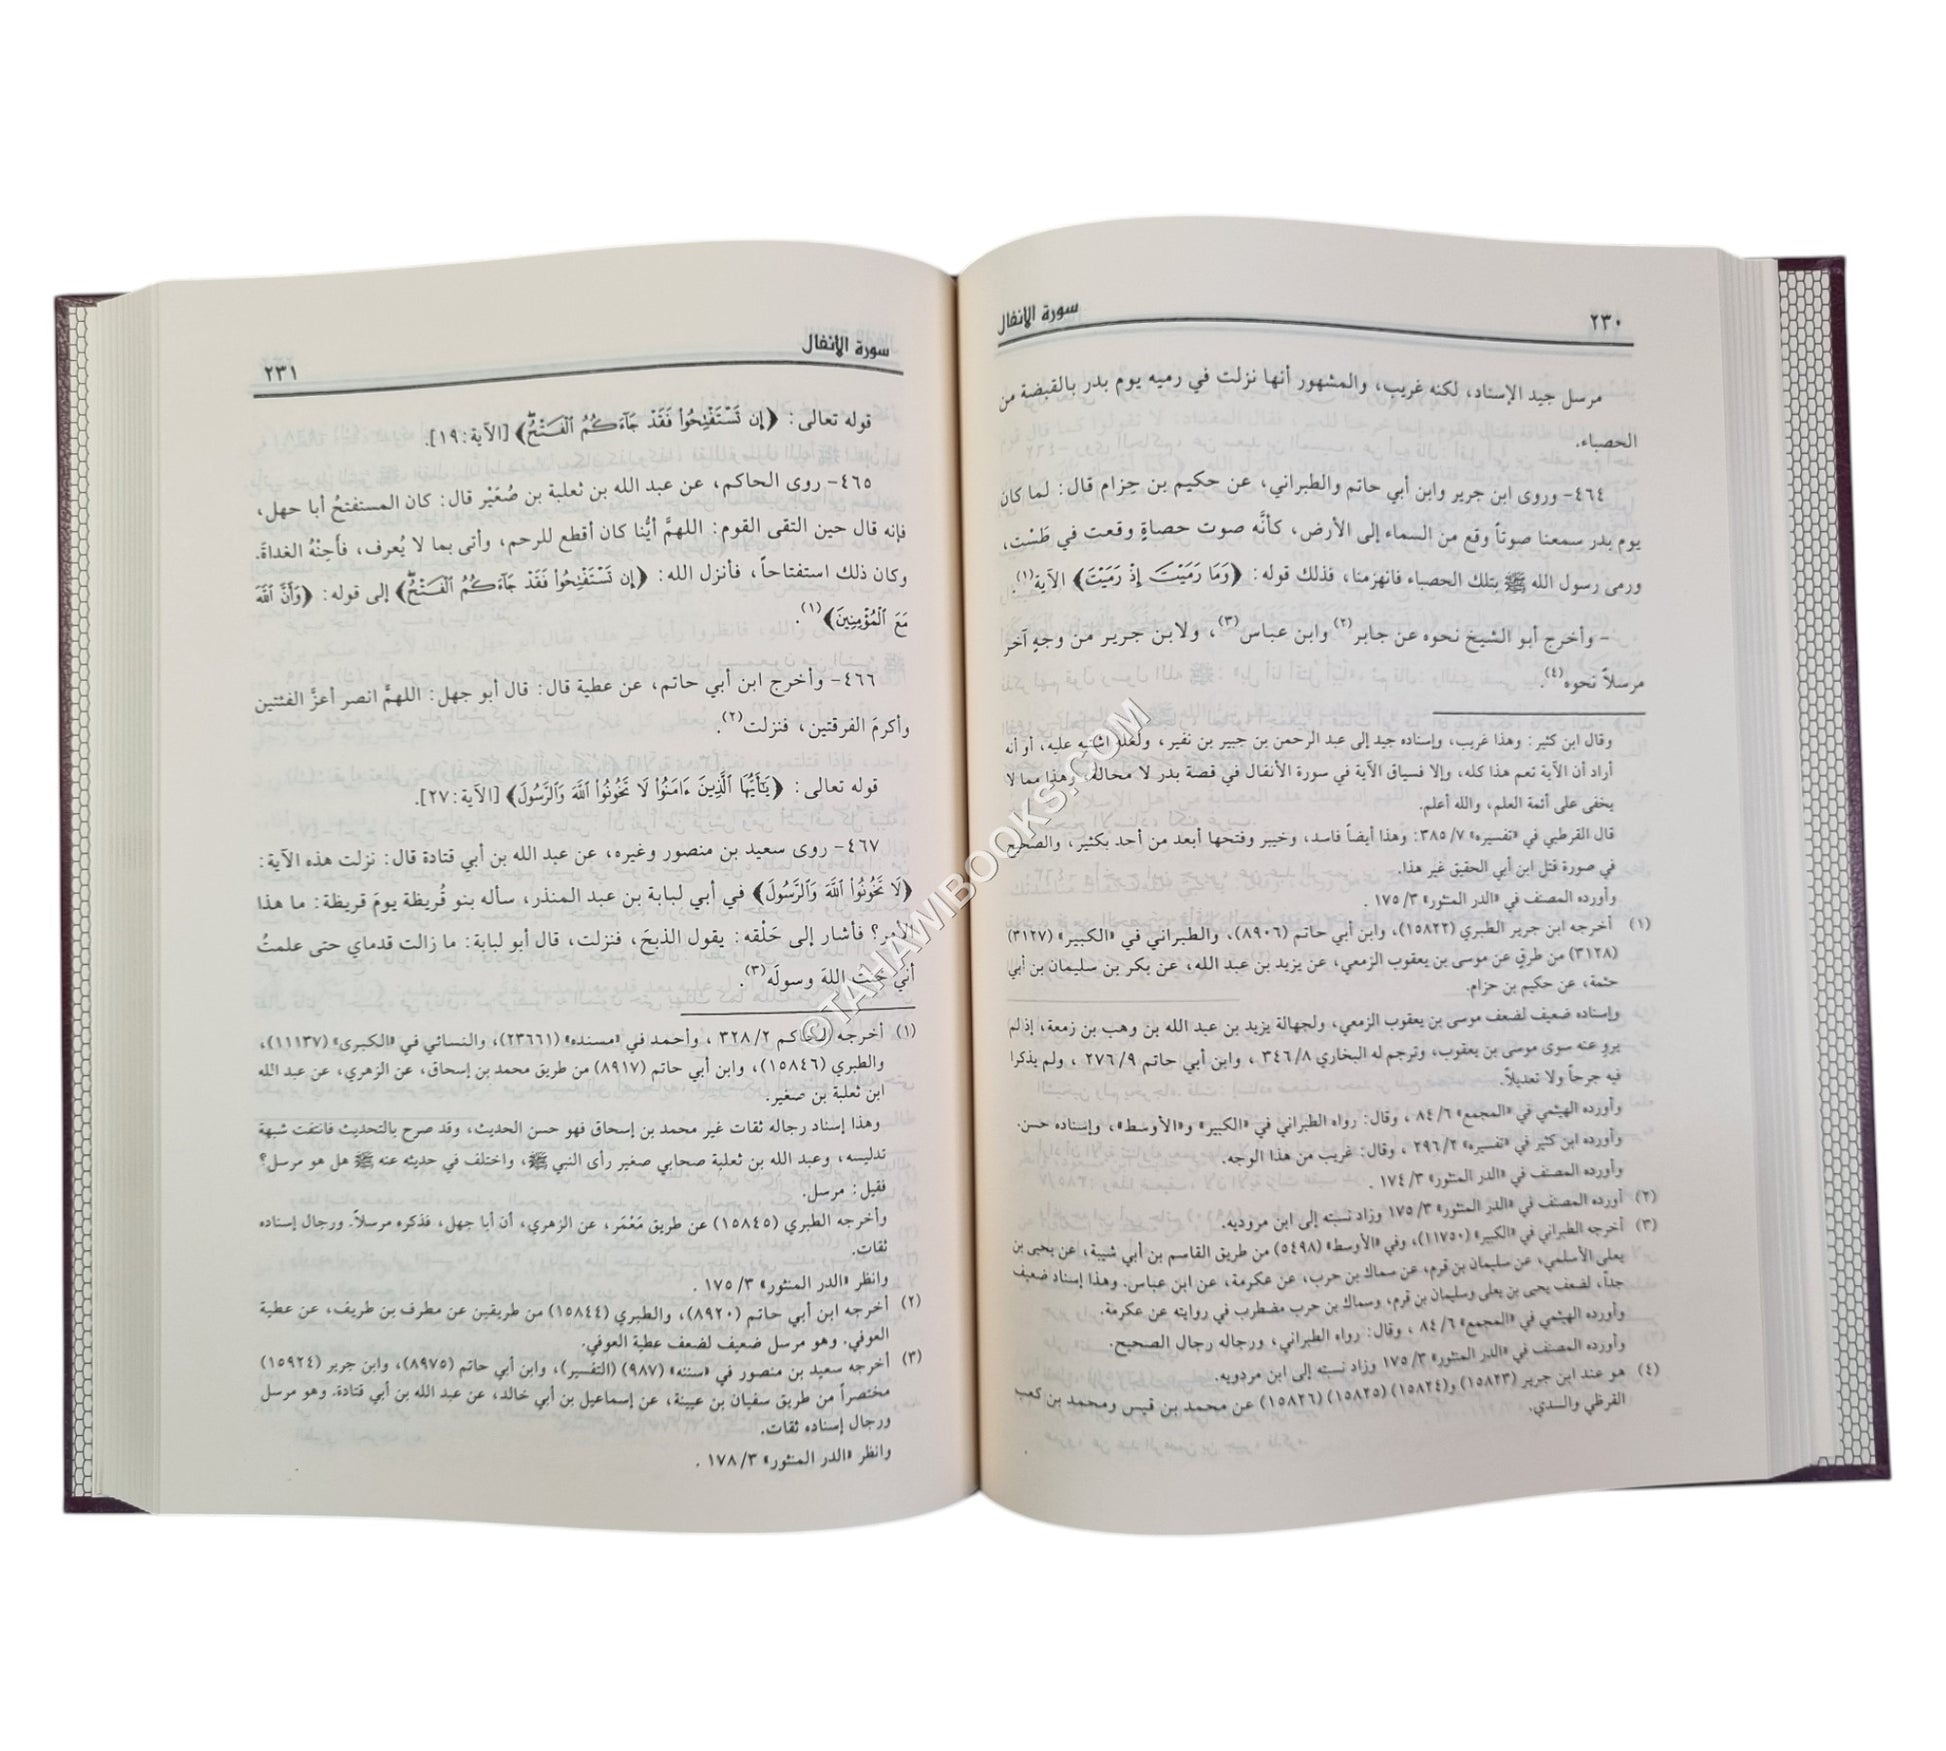 ٢٣٠ سورة الأنفال
مرسل جيد الإسناد، لكنه غريب، والمشهور أنها نزلت في رميه يوم بدر بالقبضة من
الحصباء.
٤٦٤- وروى ابن جرير وابن أبي حاتم والطبراني، عن حكيم بن حِزام قال: لما كان
يوم بدر سمعنا صوتاً وقع من السماء إلى الأرض، كأنَّه صوت حصاةٍ وقعت في طَسْت،
ورمى رسول الله ﷺ بتلك الحصباء فانهزمنا، فذلك قوله: ﴿وَمَا رَمَيْتَ إِذْ رَمَيْتَ﴾ الآية(١).
- وأخرج أبو الشيخ نحوه عن جابر(٢) وابن عباس(٣)، ولابن جرير من وجهٍ آخر
مرسلاً نحوه(٤).
وقال ابن كثير: وهذا غريب، وإسناده جيد إلى عبد الرحمن بن جبير بن نفير، ولعله اشتبه عليه، أو أنه
أراد أن الآية تعم هذا كله، وإلا فسياق الآية في سورة الأنفال في قصة بدر لا محالة، وهذا مما لا
يخفى على أئمة العلم، والله أعلم.
قال القرطبي في «تفسيره» ٣٨٥/٧: وهذا أيضاً فاسد، وخيبر وفتحها أبعد من أحد بكثير، والصحيح
في صورة قتل ابن أبي الحقيق غير هذا.
وأورده المصنف في «الدر المنثور» ١٧٥/٣.
(١) أخرجه ابن جرير الطبري (١٥٨٢٢)، وابن أبي حاتم (٨٩٠٦)، والطبراني في «الكبير» (٣١٢٧)
(٣١٢٨) من طرقٍ عن موسى بن يعقوب الزمعي، عن يزيد بن عبد الله، عن بكر بن سليمان بن أبي
حثمة، عن حكيم بن حزام.
وإسناده ضعيف لضعف موسى بن يعقوب الزمعي، ولجهالة يزيد بن عبد الله بن وهب بن زمعة، إذ لم
يرو عنه سوى موسى بن يعقوب، وترجم له البخاري ٣٤٦/٨، وابن أبي حاتم ٢٧٦/٩، ولم يذكرا
فيه جرحاً ولا تعديلاً.
وأورده الهيثمي في «المجمع» ٨٤/٦، وقال: رواه الطبراني في «الكبير» و«الأوسط»، وإسناده حسن.
وأورده ابن كثير في «تفسيره» ٢٩٦/٢، وقال: غريب من هذا الوجه.
وأورده المصنف في «الدر المنثور» ١٧٤/٣.
(٢) أورده المصنف في «الدر المنثور» ١٧٥/٣ وزاد نسبته إلى ابن مروديه.
(٣) أخرجه الطبراني في «الكبير» (١١٧٥٠)، وفي «الأوسط» (٥٤٩٨) من طريق القاسم بن أبي شيبة، عن يحيى بن
يعلى الأسلمي، عن سليمان بن قرم، عن سماك بن حرب، عن عكرمة، عن ابن عباس. وهذا إسناد ضعيف
جداً، لضعف يحيى بن يعلى وسليمان بن قرم، وسماك بن حرب مضطرب في روايته عن عكرمة.
وأورده الهيثمي في «المجمع» ٨٤/٦، وقال: رواه الطبراني، ورجاله رجال الصحيح.
وأورده المصنف في «الدر المنثور» ١٧٥/٣ وزاد نسبته إلى ابن مردويه.
(٤) هو عند ابن جرير (١٥٨٢٣) و(١٥٨٢٤) (١٥٨٢٥) (١٥٨٢٦) عن محمد بن قيس ومحمد بن كعب
القرظي والسدي.
سورة الأنفال ٢٣١
قوله تعالى: ﴿إِن تَسْتَفْتِحُوا۟ فَقَدْ جَآءَكُمُ ٱلْفَتْحُ﴾ [الآية: ١٩].
٤٦٥- روى الحاكم، عن عبد الله بن ثعلبة بن صُعَيْر قال: كان المستفتحُ أبا جهل،
فإنه قال حين التقى القوم: اللهمَّ أيُّنا كان أقطع للرحم، وأتى بما لا يُعرف، فأَحِنْهُ الغداةَ.
وكان ذلك استفتاحاً، فأنزل الله: ﴿إِن تَسْتَفْتِحُوا۟ فَقَدْ جَآءَكُمُ ٱلْفَتْحُ﴾ إلى قوله: ﴿وَأَنَّ ٱللَّهَ
مَعَ ٱلْمُؤْمِنِينَ﴾(١).
٤٦٦- وأخرج ابن أبي حاتم، عن عطية قال: قال أبو جهل: اللهمَّ انصر أعزَّ الفئتين
وأكرمَ الفرقتين، فنزلت(٢).
قوله تعالى: ﴿يَٰٓأَيُّهَا ٱلَّذِينَ ءَامَنُوا۟ لَا تَخُونُوا۟ ٱللَّهَ وَٱلرَّسُولَ﴾ [الآية: ٢٧].
٤٦٧- روى سعيد بن منصور وغيره، عن عبد الله بن أبي قتادة قال: نزلت هذه الآية:
﴿لَا تَخُونُوا۟ ٱللَّهَ وَٱلرَّسُولَ﴾ في أبي لبابة بن عبد المنذر، سأله بنو قُريظة يومَ قريظة: ما هذا
الأمر؟ فأشار إلى حَلْقه: يقول الذبحَ، فنزلت، قال أبو لبابة: ما زالت قدماي حتى علمتُ
أني خنت اللهَ وسولَه(٣).
(١) أخرجه الحاكم ٣٢٨/٢، وأحمد في «مسنده» (٢٣٦٦١)، والنسائي في «الكبرى» (١١١٣٧)،
والطبري (١٥٨٤٦)، وابن أبي حاتم (٨٩١٧) من طريق محمد بن إسحاق، عن الزهري، عن عبد الله
ابن ثعلبة بن صغير.
وهذا إسناد رجاله ثقات غير محمد بن إسحاق فهو حسن الحديث، وقد صرح بالتحديث فانتفت شبهة
تدليسه، وعبد الله بن ثعلبة صحابي صغير رأى النبي ﷺ، واختلف في حديثه عنه ﷺ هل هو مرسل؟
فقيل: مرسل.
وأخرجه الطبري (١٥٨٤٥) عن طريق مَعْمَر، عن الزهري، أن أبا جهل، فذكره مرسلاً. ورجال إسناده
ثقات.
وانظر «الدر المنثور» ١٧٥/٣.
(٢) أخرجه ابن أبي حاتم (٨٩٢٠)، والطبري (١٥٨٤٤) من طريقين عن مطرف بن طريف، عن عطية
العوفي. وهو مرسل ضعيف لضعف عطية العوفي.
(٣) أخرجه سعيد بن منصور في «سننه» (٩٨٧) (التفسير)، وابن أبي حاتم (٨٩٧٥)، وابن جرير (١٥٩٢٤)
مختصراً من طريق سفيان بن عيينة، عن إسماعيل بن أبي خالد، عن عبد الله بن أبي قتادة. وهو مرسل
ورجال إسناده ثقات.
وانظر «الدر المنثور» ١٧٨/٣.
©TAHAWIBOOKS.COM